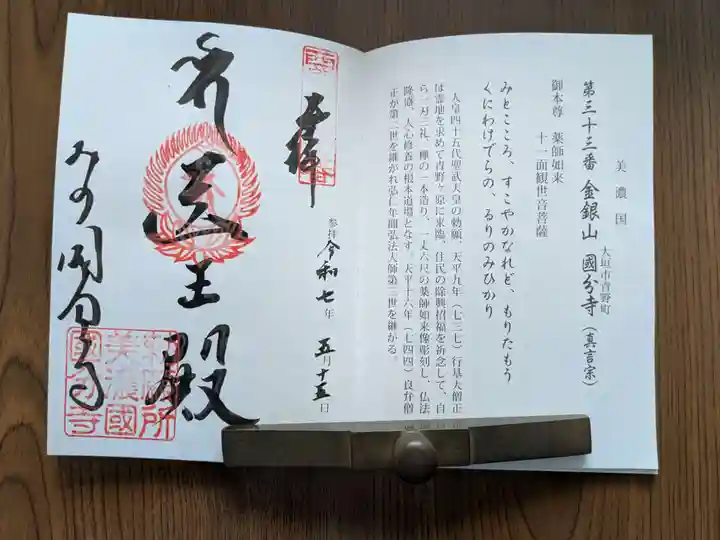 美濃国
大垣市青野町
第三十三番 金銀山 國分寺（真言宗）
御本尊 薬師如来
十一面観世音菩薩
みとこころ、すこやかなれど、もりたもう
くにわけでらの、るりのみひかり
人皇四十五代聖武天皇の勅願、天平九年（七三七）行基大僧正
は霊地を求めて青野ヶ原に来臨、住民の除興招福を祈念して、自
ら一刀三礼、欅の一本造り、一丈六尺の薬師如来像彫刻し、仏法
隆盛、人心修養の根本道場となす。天平十六年（七四四）良弁僧
正が第二世を継がれ弘仁年間弘法大師第三世を継がる。
参拝 令和七年 五月十五日
奉拝
医王殿
みの国分寺
美濃國
國分寺